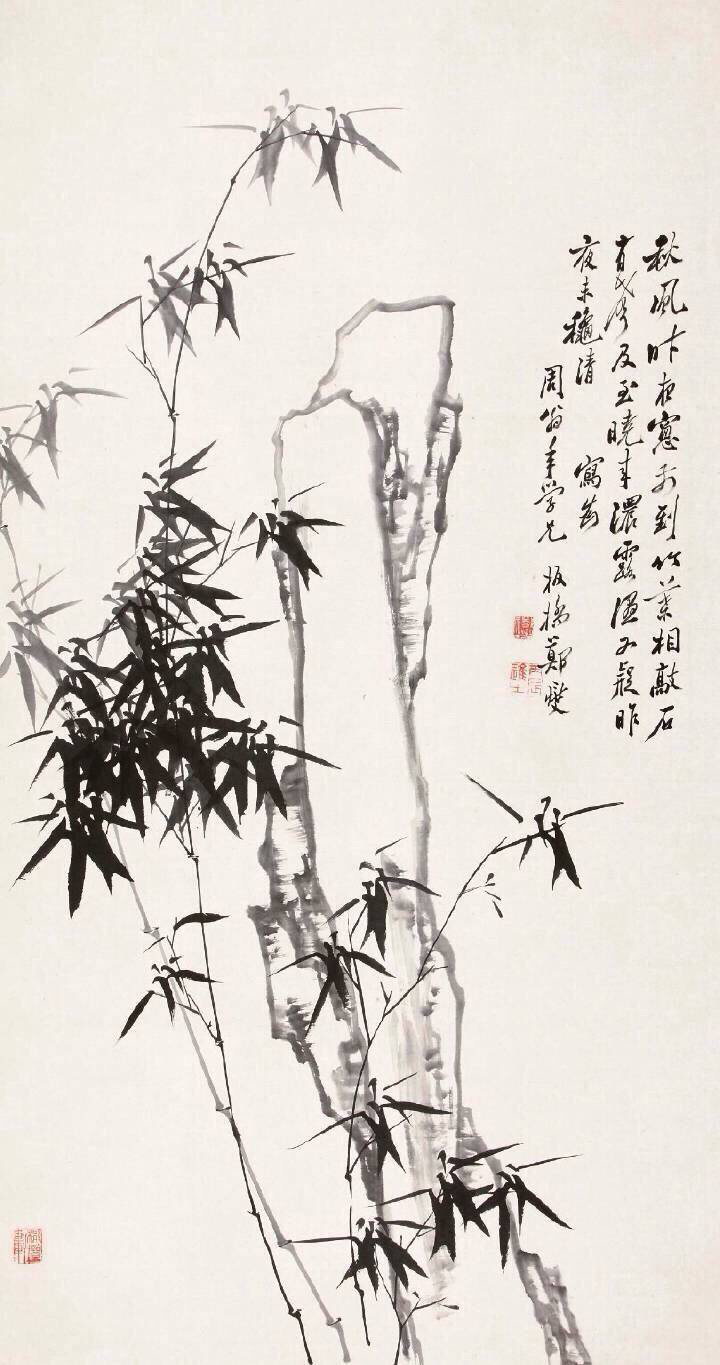 秋風昨夜窻前到竹葉相敲石
有聲及至曉來濃露濕又疑昨
夜未龝清
寫為
周翁年學兄 板橋鄭燮
丙辰進士